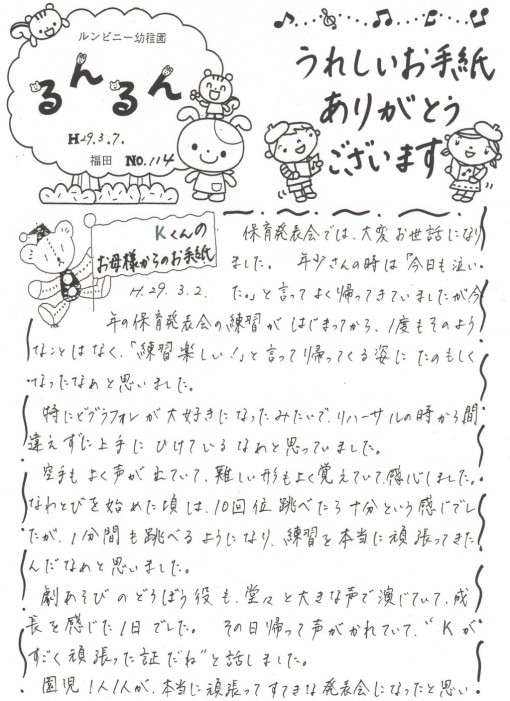 ルンビニー幼稚園
るんるん
H29.3.7.
福田 No.114
うれしいお手紙
ありがとう
ございます
Kくんの
お母様からのお手紙
H.29.3.2.
保育発表会では、大変お世話になり
ました。 年少さんの時は「今日も泣い
た。」と言ってよく帰ってきていましたが今
年の保育発表会の練習がはじまってから、1度もそのよう
なことはなく、「練習楽しい!」と言って帰ってくる姿にたのもしく
なったなぁと思いました。
特にビブラフォンが大好きになったみたいで、リハーサルの時から間
違えずに上手にひけているなぁと思っていました。
空手もよく声が出ていて、難しい形もよく覚えていて、感心しました。
なわとびを始めた頃は、10回位跳べたら十分という感じでし
たが、1分間も跳べるようになり、練習を本当に頑張ってきた
んだなぁと思いました。
劇あそびのどろぼう役も、堂々と大きな声で演じていて、成
長を感じた1日でした。 その日帰って声がかれていて、“Kが
すごく頑張った証だね”と話しました。
園児1人1人が、本当に頑張ってすてきな発表会になったと思い